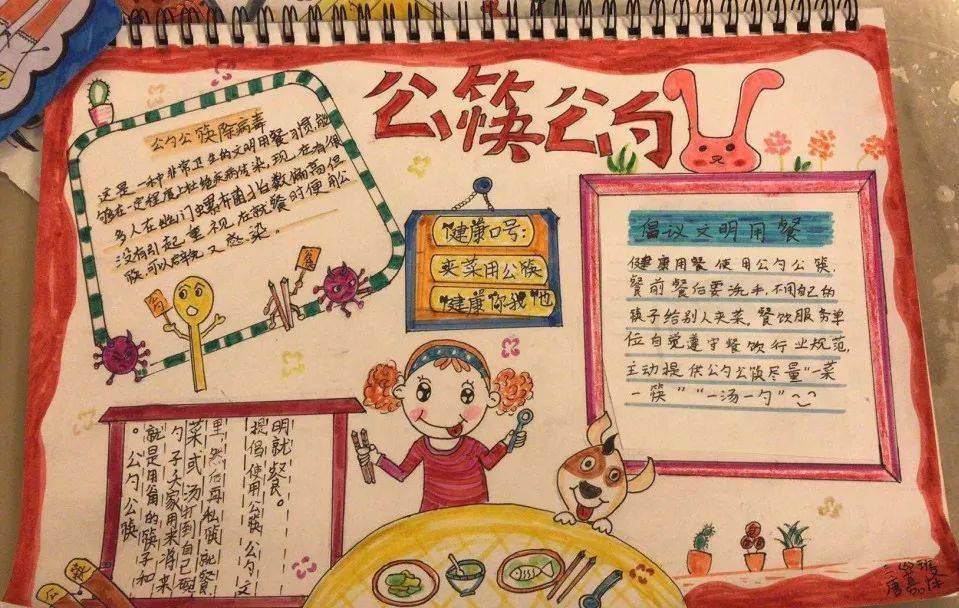 公筷公勺
公勺公筷除病毒
这是一种非常卫生的文明用餐习惯,能
够在一定程度上杜绝疾病传染,现在有很
多人在幽门螺杆菌指数偏高但
没有引起重视,在就餐时使用公
筷,可以避免又感染。
健康口号:
夹菜用公筷
健康你我他
倡议文明用餐
健康用餐使用公勺公筷,
餐前餐后要洗手,不用自己的
筷子给别人夹菜。餐饮服务单
位自觉遵守餐饮行业规范,
主动提供公勺公筷尽量“一菜
一筷”“一汤一勺”~
。公勺公筷
就是用的筷子和
勺子大家用来将来
菜或汤打到自己碗
里,然后再私筷就餐
提倡使用公筷公勺文
明就餐。
公
筷